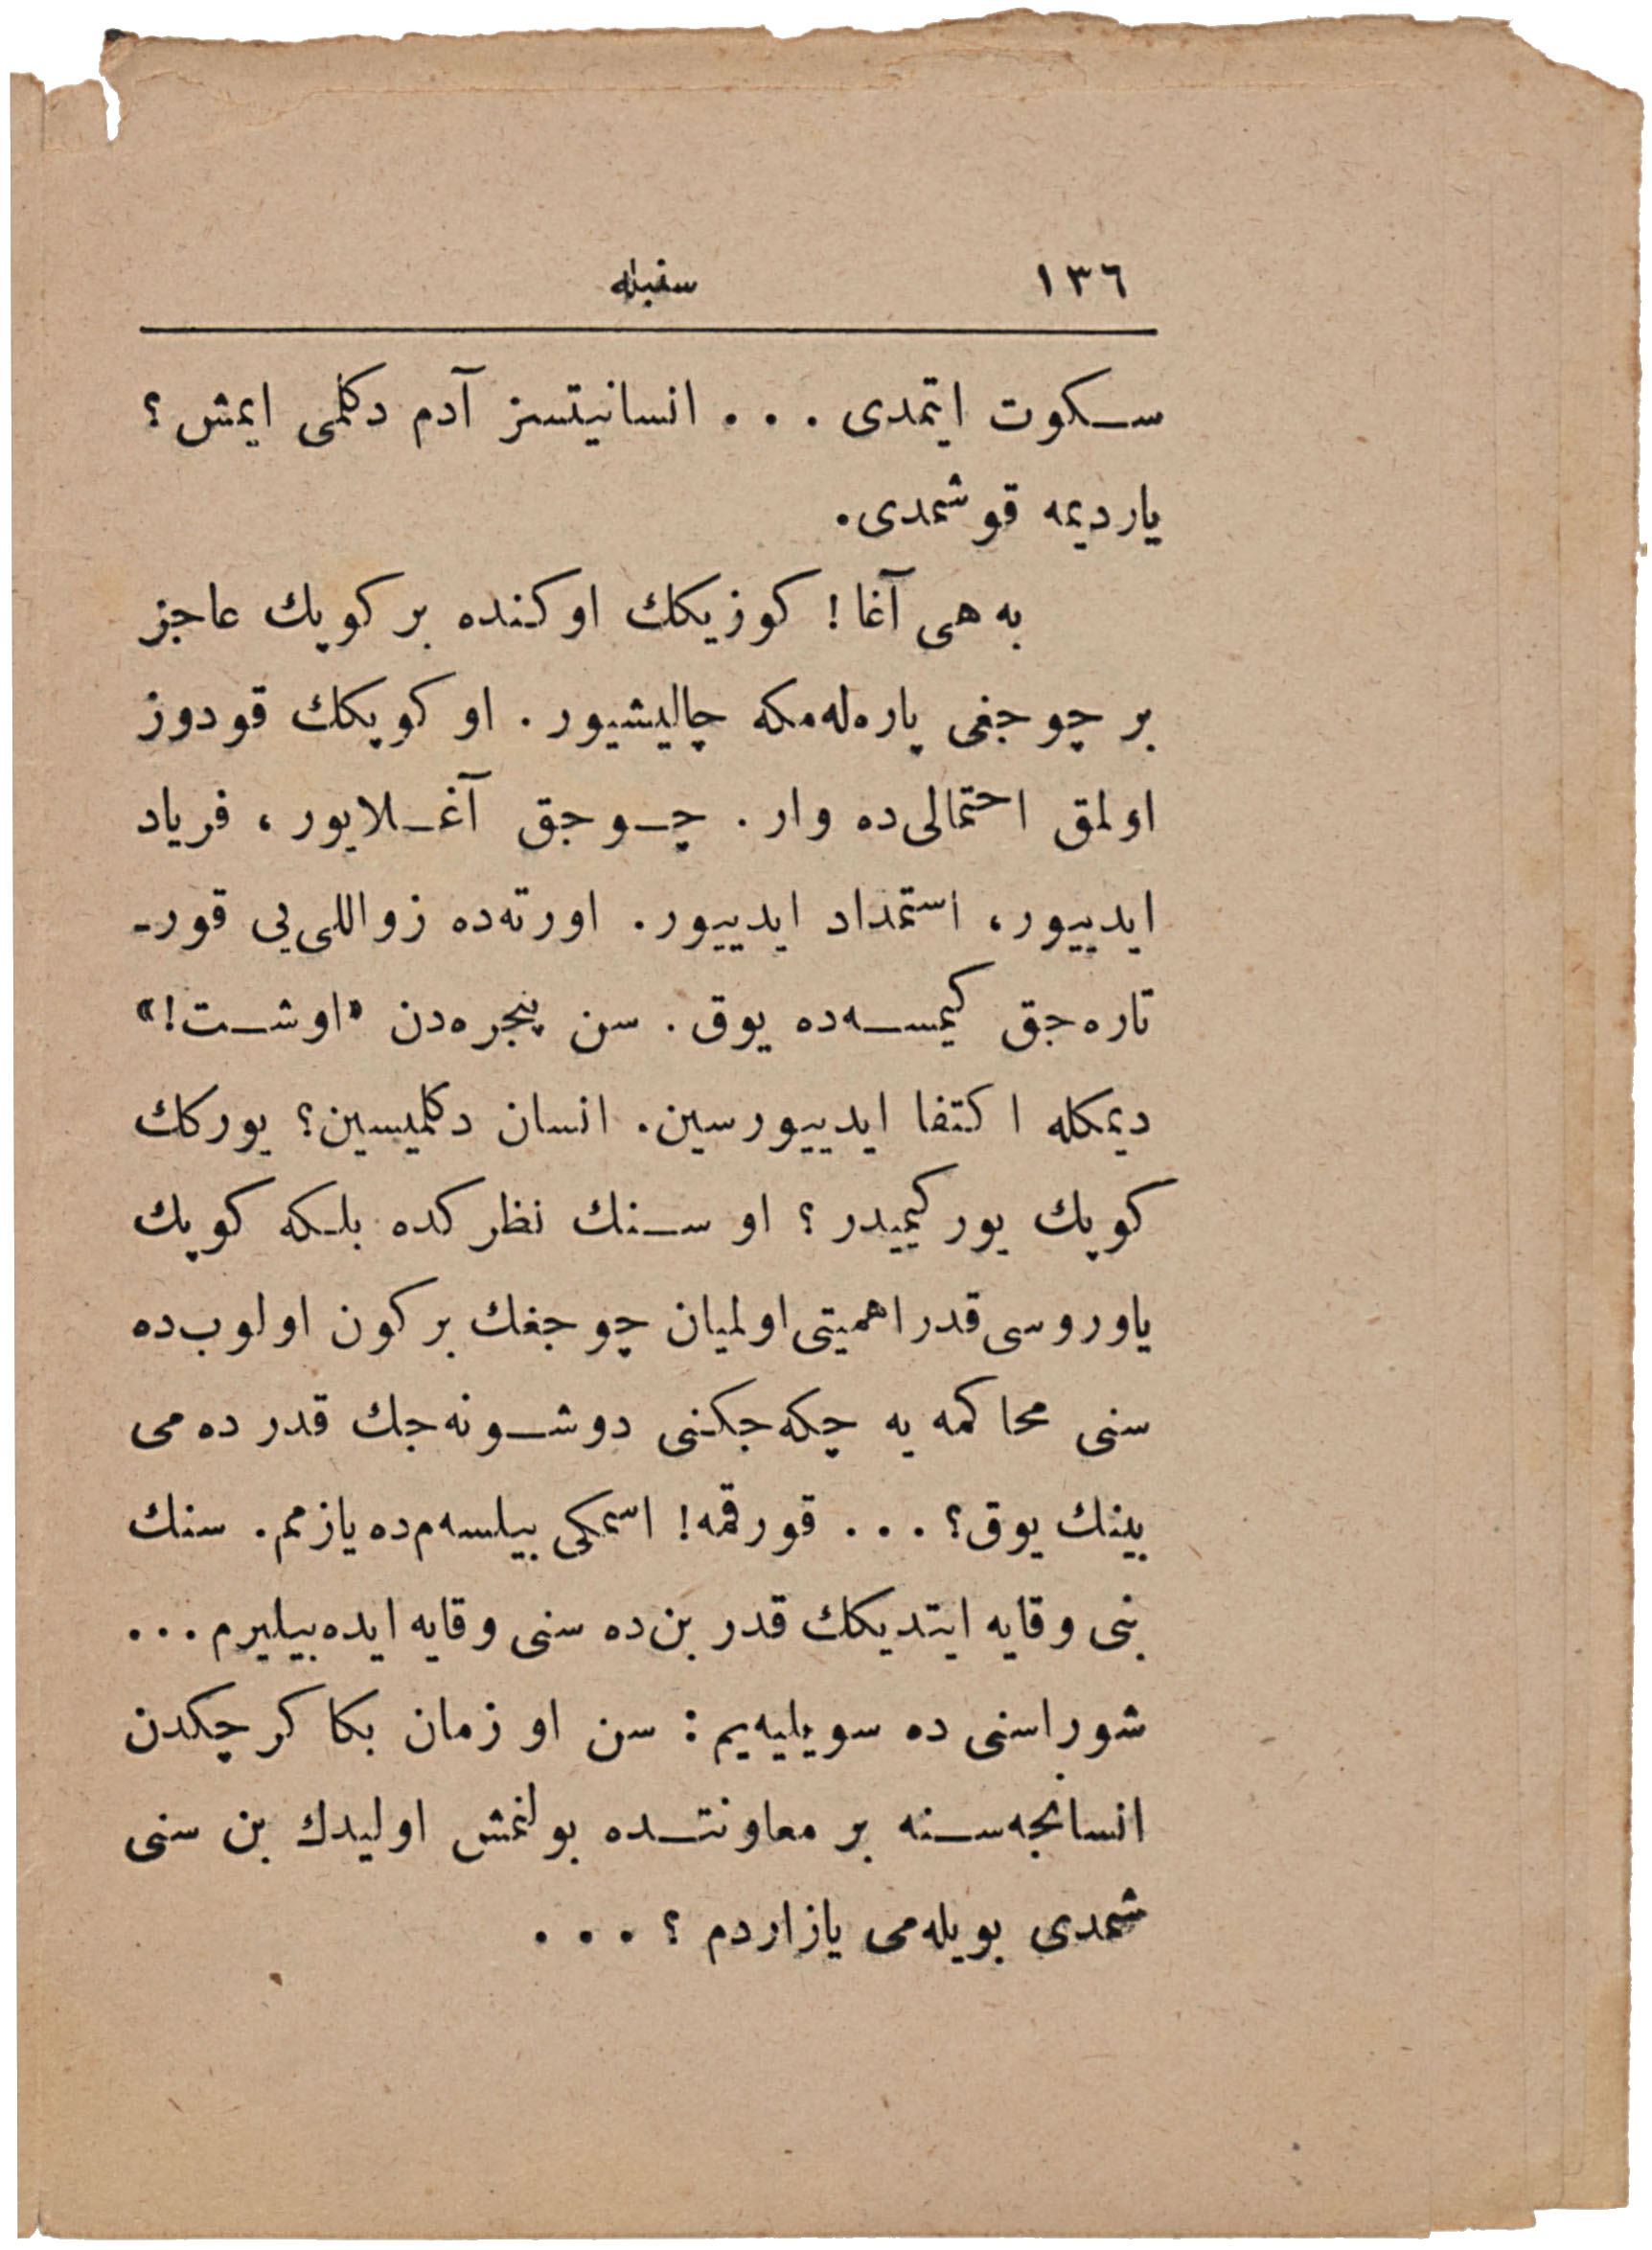 ١٣٦ سفیله
سكوت ایتمدی . . . انسانیتسز آدم دكلمی ایمش ؟
یاردیمه قوشمدی.
به هی آغا ! كوزیكك اوكنده بر كوپك عاجز
بر چوجغی پاره‌له‌مكه چالیشیور . او كوپكك قودوز
اولمق احتمالی‌ده وار . چوجق آغلایور ، فریاد
ایدییور، استمداد ایدییور. اورته‌ده زواللی‌یی قور-
تاره‌جق كیمسه‌ده یوق . سن پنجره‌دن «اوشت!»
دیمكله اكتفا ایدییورسین. انسان دكلمیسین؟ یوركك
كوپك یوركیمیدر ؟ او سنك نظركده بلكه كوپك
یاوروسی قدر اهمیتی اولمیان چوجغك بر كون اولوب‌ده
سنی محاكمه یه چكه‌جكنی دوشونه‌جك قدر ده‌می
بینك یوق؟ . . . قورقمه! اسمكی بیلسه‌م‌ده یازمم. سنك
بنی وقایه ایتدیكك قدر بن‌ده سنی وقایه ایده‌بیلیرم ...
شوراسنی ده سویلیه‌یم : سن او زمان بكا كرچكدن
انسانجه‌سنه بر معاونتده بولنمش اولیدك بن سنی
شمدی بویله‌می یازاردم ؟ . . .